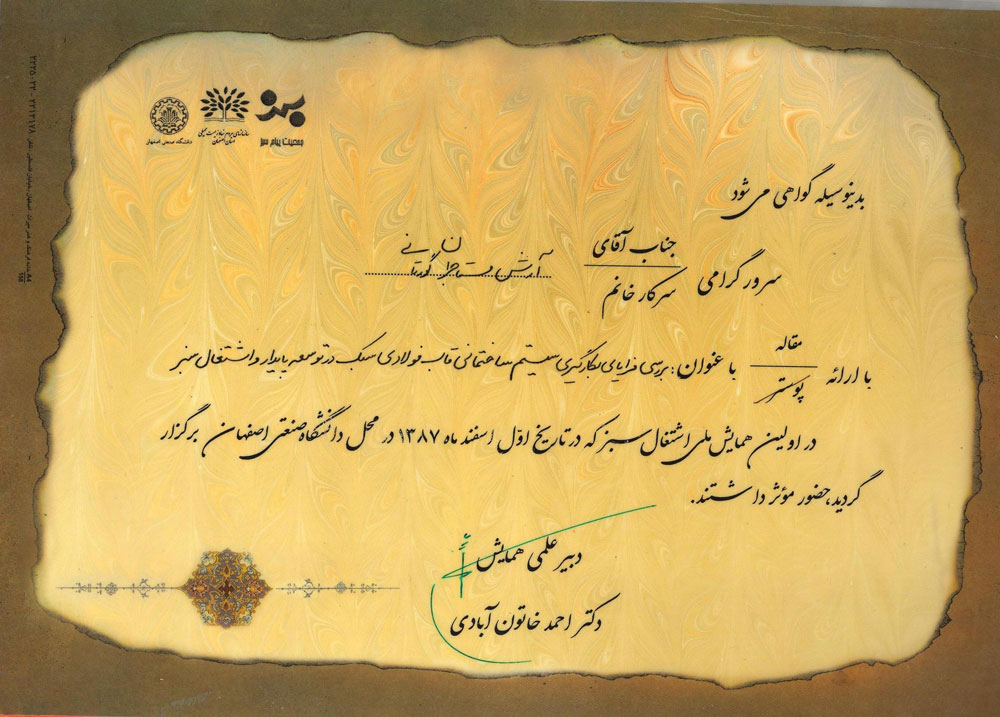 جمعیت پیام سبز
استان اصفهان
دانشگاه صنعتی اصفهان
بدینوسیله گواهی می شود
سرور گرامی جناب آقای
سرکار خانم
با ارائه مقاله
پوستر
با عنوان: بررسی مزایای بکارگیری سیستم ساختمانی قاب فولادی سبک در توسعه پایدار و اشتغال سبز
در اولین همایش ملی اشتغال سبز که در تاریخ اوّل اسفند ماه ۱۳۸۷ در محل دانشگاه صنعتی اصفهان برگزار
گردید، حضور مؤثر داشتند.
دبیر علمی همایش
دکتر احمد خاتون آبادی